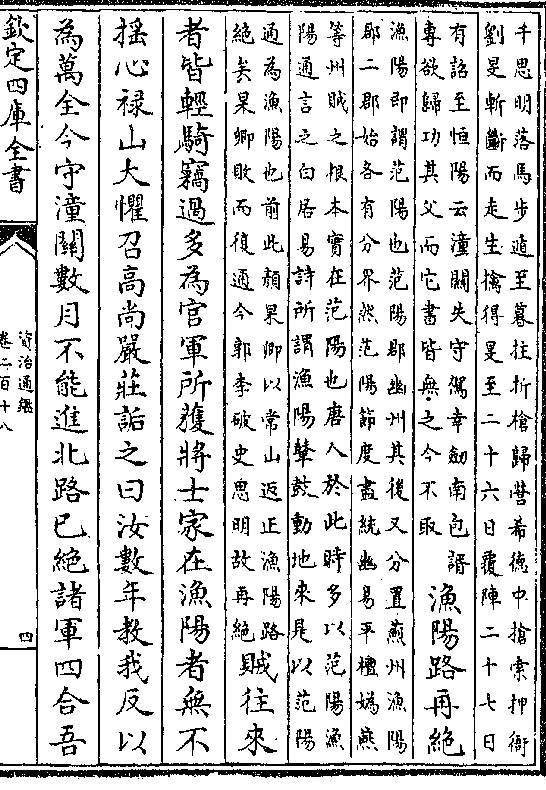 千思明落馬步遁至暮拄折槍歸營希德中搶索押衙
劉旻斬斷而走生擒得旻至二十六日覆陣二十七日
有詔至恒陽云潼關失守駕幸劒南包諝
專欲歸功其父而它書皆無之今不取
漁陽路再絶
漁陽即謂范陽也范陽郡幽州其後又分置薊州漁陽
郡二郡始各有分界然范陽節度盡統幽易平檀媯燕
等州賊之根本實在范陽也唐人於此時多以范陽漁
陽通言之白居易詩所謂漁陽鼙鼓動地來是以范陽
通為漁陽也前此顔杲卿以常山返正漁陽路
絶矣杲卿敗而復通今郭李破史思明故再絶
賊往來
者皆輕騎竊過多為官軍所獲將士家在漁陽者無不
揺心禄山大懼召髙尚嚴莊詬之曰汝數年教我反以
為萬全今守潼關數月不能進北路已絶諸軍四合吾
欽定四庫全書
資治通鑑
卷二百十八
四